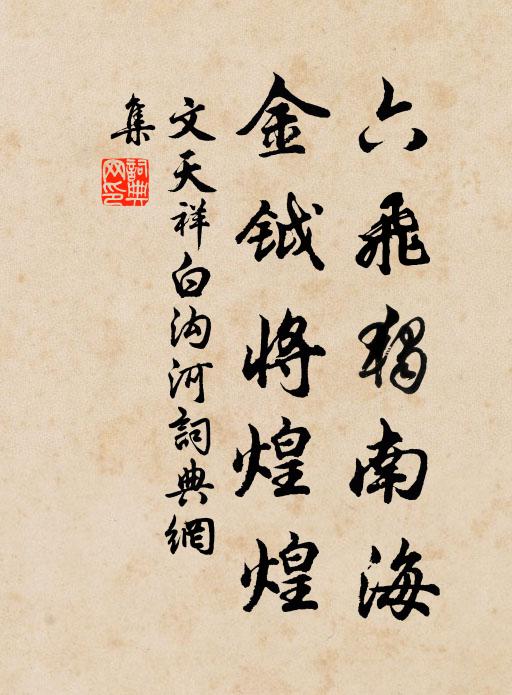 六飛獨南海
金鉞將煌煌
文天祥白沟河詞典網
集
詞典
网印